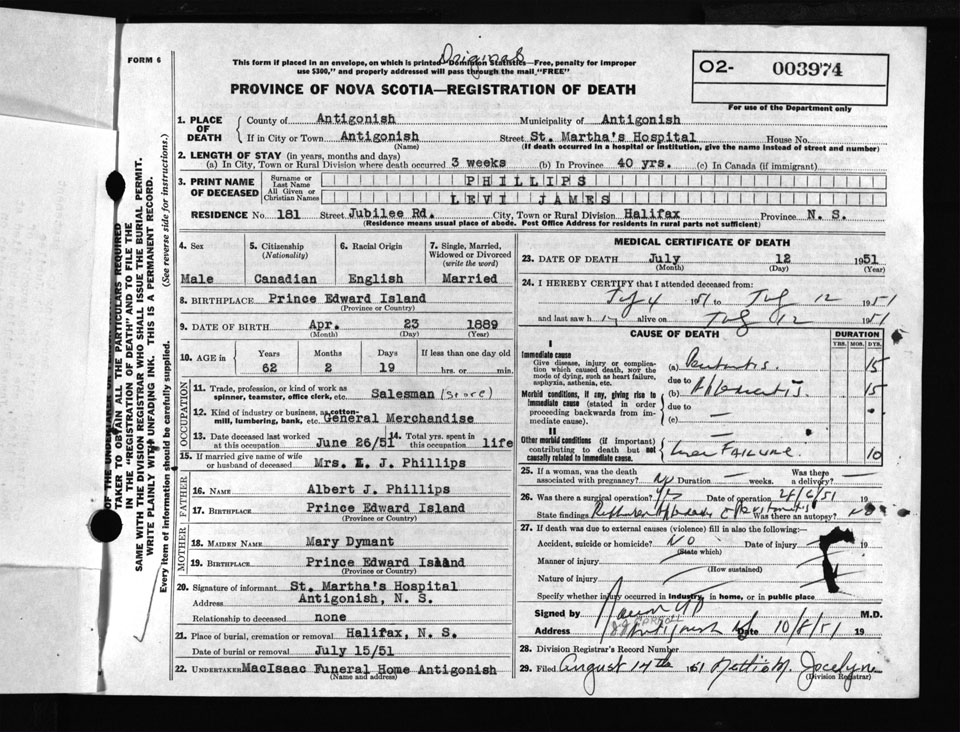 FORM 6
Original
This form if placed in an envelope, on which is printed Dominion Statistics—Free, penalty for improper
use $300," and properly addressed will pass through the mail "FREE"
PROVINCE OF NOVA SCOTIA—REGISTRATION OF DEATH
O2- 003974
For use of the Department only
1. PLACE OF DEATH
County of Antigonish Municipality of Antigonish
If in City or Town Antigonish Street St. Martha's Hospital House No.
(Name) (If death occurred in a hospital or institution, give the name instead of street and number)
2. LENGTH OF STAY (in years, months and days)
(a) In City, Town or Rural Division where death occurred 3 weeks (b) In Province 40 yrs. (c) In Canada (if immigrant)
3. PRINT NAME OF DECEASED
Surname or Last Name PHILLIPS
All Given or Christian Names LEVI JAMES
RESIDENCE No. 181 Street Jubilee Rd. City, Town or Rural Division Halifax Province N. S.
(Residence means usual place of abode. Post Office Address for residents in rural parts not sufficient)
4. Sex 5. Citizenship (Nationality) 6. Racial Origin 7. Single, Married, Widowed or Divorced (write the word)
Male Canadian English Married
8. BIRTHPLACE Prince Edward Island
(Province or Country)
9. DATE OF BIRTH Apr. 23 1889
(Month) (Day) (Year)
10. AGE in Years Months Days If less than one day old
62 2 19 hrs. or min.
OCCUPATION
11. Trade, profession or kind of work as
spinner, teamster, office clerk, etc. Salesman (Store)
12. Kind of industry or business, as cotton-
mill, lumbering, bank, etc. General Merchandise
13. Date deceased last worked at this occupation June 26/51 14. Total yrs. spent in this occupation life
15. If married give name of wife
or husband of deceased Mrs. L. J. Phillips
FATHER
16. NAME Albert J. Phillips
17. BIRTHPLACE Prince Edward Island
(Province or Country)
MOTHER
18. MAIDEN NAME Mary Dymant
19. BIRTHPLACE Prince Edward Island
(Province or Country)
20. Signature of informant St. Martha's Hospital
Address Antigonish, N. S.
Relationship to deceased none
21. Place of burial, cremation or removal Halifax, N. S.
Date of burial or removal July 15/51
22. UNDERTAKER MacIsaac Funeral Home Antigonish
(Name and address)
MEDICAL CERTIFICATE OF DEATH
23. DATE OF DEATH July 12 1951
(Month) (Day) (Year)
24. I HEREBY CERTIFY that I attended deceased from:
July 4 1951 to July 12 1951
and last saw him alive on July 12 1951
CAUSE OF DEATH DURATION
YRS. MOS. DYS.
I
Immediate cause
Give disease, injury or complication which caused death, not the mode of dying, such as heart failure, asphyxia, asthenia, etc.
(a) Peritonitis. 15
due to
(b) Appendicitis. 15
Morbid conditions, if any, giving rise to immediate cause (stated in order proceeding backwards from immediate cause).
due to —
(c) —
II
Other morbid conditions (if important) contributing to death but not causally related to immediate cause.
Liver FAILURE 10
25. If a woman, was the death associated with pregnancy? No Duration — weeks. Was there a delivery? —
26. Was there a surgical operation? Yes Date of operation 28/6/51 19
State findings Ruptured Appendix Peritonitis Was there an autopsy? No
27. If death was due to external causes (violence) fill in also the following:—
Accident, suicide or homicide? NO Date of injury 19
(State which)
Manner of injury
(How sustained)
Nature of injury
Specify whether injury occurred in industry, in home, or in public place
Signed by M.D.
Address Antigonish Date 10/8/51 19
28. Division Registrar's Record Number
29. Filed August 14th 1951 Nettie M. Jocelyne
(Division Registrar)
TAKER TO OBTAIN ALL THE PARTICULARS REQUIRED
IN THE "REGISTRATION OF DEATH" AND TO FILE THE
SAME WITH THE DIVISION REGISTRAR WHO SHALL ISSUE THE BURIAL PERMIT.
WRITE PLAINLY WITH UNFADING INK. THIS IS A PERMANENT RECORD.
Every item of information should be carefully supplied. (See reverse side for instructions.)